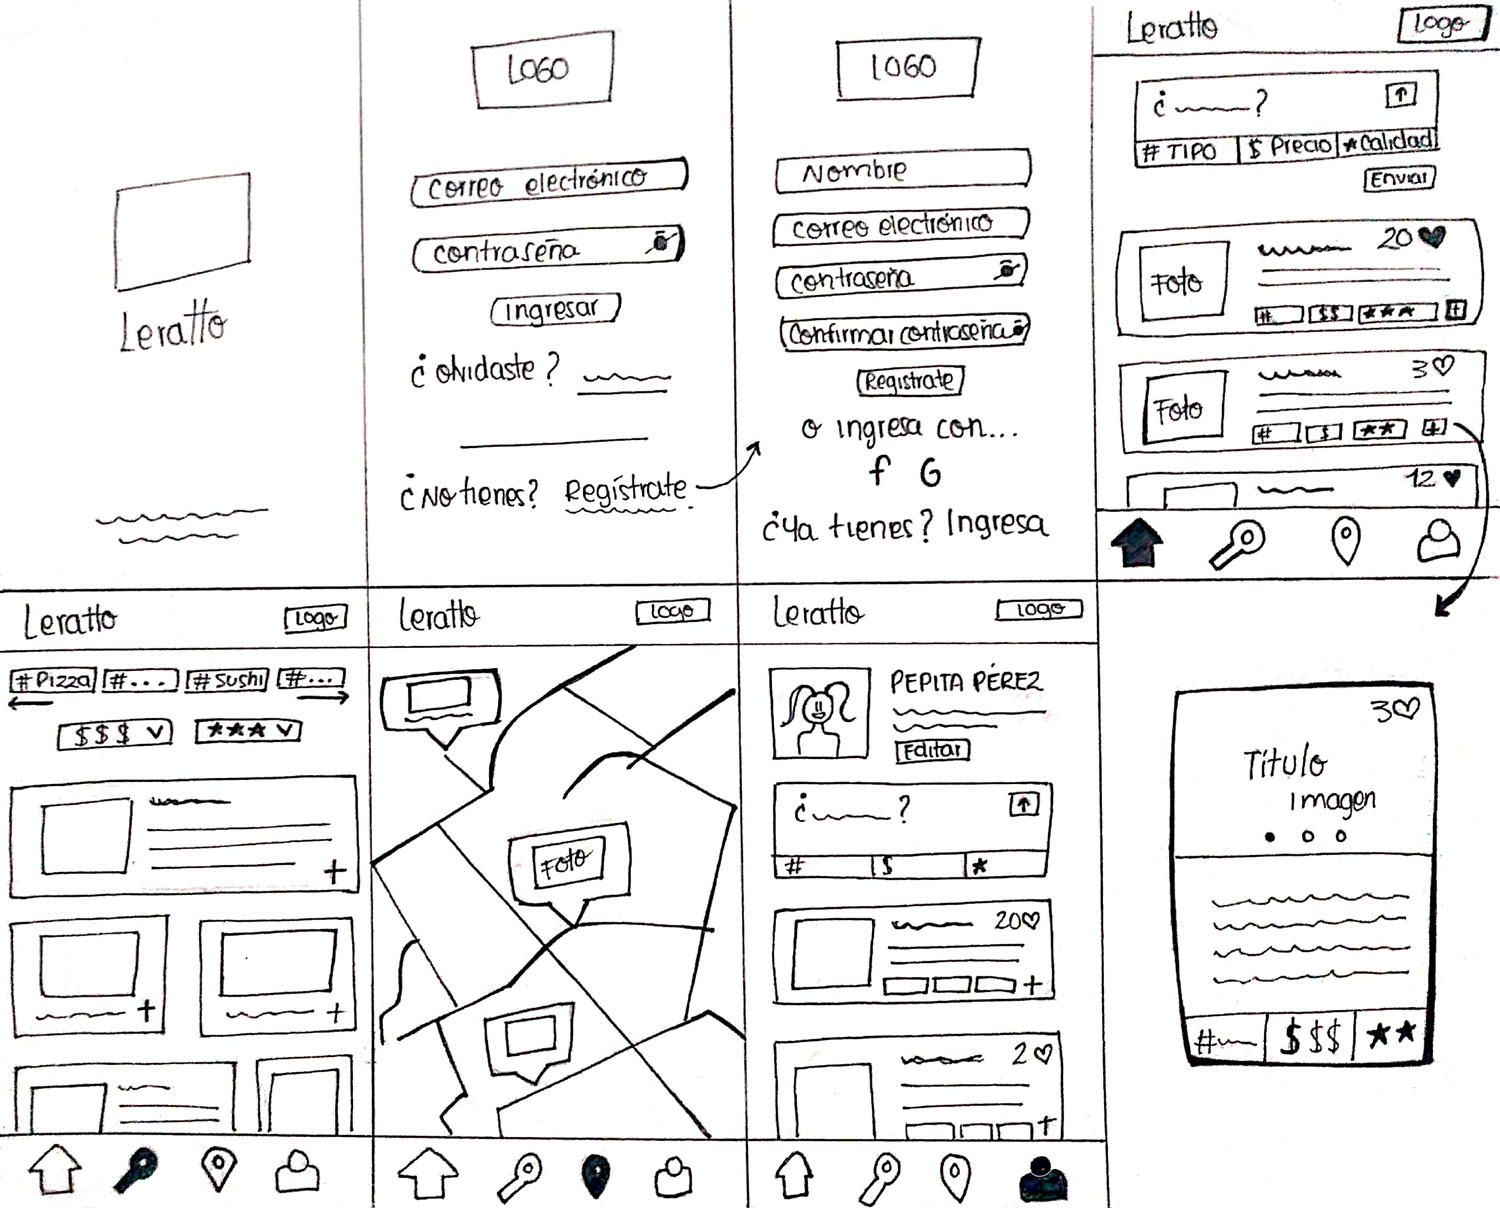 Leratto
LOGO
correo electrónico
contraseña
Ingresar
¿olvidaste?
¿No tienes? Regístrate.
LOGO
Nombre
correo electrónico
contraseña
Confirmar contraseña
Registrate
o ingresa con...
f G
¿Ya tienes? Ingresa
Leratto Logo
¿ ?
# TIPO $ Precio ★ Calidad
Enviar
20
Foto
# $$ ★★★ +
3
Foto
# $ ★★ +
12
Leratto Logo
#Pizza #... #Sushi #...
$$$ ★★★
+
+ +
Leratto Logo
Foto
Leratto Logo
PEPITA PÉREZ
Editar
¿ ?
# $ ★
20
+
2
+
3
Título
imagen
# $$$ ★★